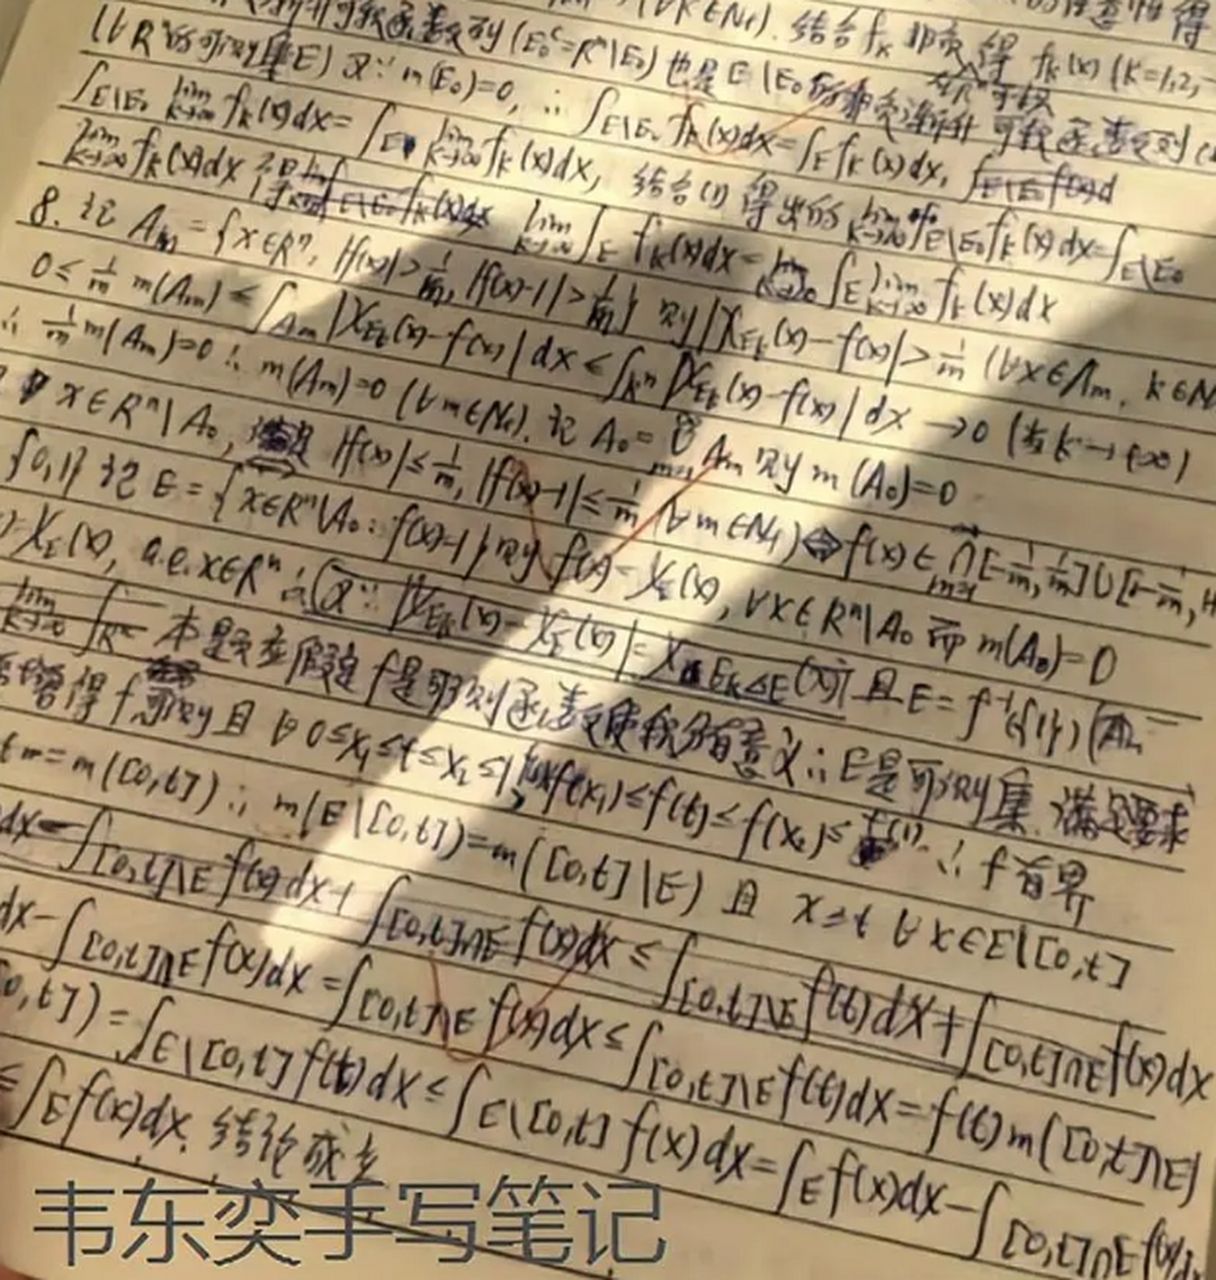 (∀k∈N₊). 结合 fₖ 非负 得 fₖ(x) (k=1,2,
可数函数列 (E₀ᶜ=Rⁿ\E₀) 也是 E\E₀ 非负 可数函数列
(∀Rⁿ 可测集E) 又∵ m(E₀)=0, ∴ ∫_{E\E₀} fₖ(x)dx=∫_E fₖ(x)dx,
∫_{E\E₀} lim_{k→∞} fₖ(x)dx=∫_E lim_{k→∞} fₖ(x)dx, 结合(1) 得出的 lim_{k→∞} ∫_{E\E₀} fₖ(x)dx=∫_{E\E₀}
lim_{k→∞} fₖ(x)dx 得 lim_{k→∞} ∫_E fₖ(x)dx= ∫_E lim_{k→∞} fₖ(x)dx
8. 记 Aₘ={x∈Rⁿ, |f(x)|>1/m, |f(x)-1|>1/m} 则 |χ_{Eₖ}(x)-f(x)|>1/m (∀x∈Aₘ, k∈N
0≤ 1/m m(Aₘ) ≤ ∫_{Aₘ} |χ_{Eₖ}(x)-f(x)| dx ≤ ∫_{Rⁿ} |χ_{Eₖ}(x)-f(x)| dx →0 (当 k→+∞)
∴ 1/m m(Aₘ)=0 ∴ m(Aₘ)=0 (∀m∈N₊). 记 A₀= ∪_{m=1}^∞ Aₘ 则 m(A₀)=0
x∈Rⁿ\A₀, |f(x)|≤1/m, |f(x)-1|≤1/m (∀m∈N₊) ⇔ f(x)∈ ∩_{m=1}^∞ [-1/m, 1/m]∪[1-1/m, 1+
{0,1} 记 E={x∈Rⁿ\A₀: f(x)=1} 则 f(x)=χ_E(x), ∀x∈Rⁿ\A₀ 而 m(A₀)=0
)=χ_E(x), a.e. x∈Rⁿ ∴ (又∵ |χ_{Eₖ}(x)-χ_E(x)|=χ_{EₖΔE}(x)) 且 E=f⁻¹({1})
lim_{k→∞} ∫_{Rⁿ} 本题应假定 f是可测函数使积分有意义 ∴E是可测集 满足要求
得 f可测 且 ∀ 0≤x₁≤t≤x₂≤1, f(x₁)≤f(t)≤f(x₂)≤ f(1). ∴ f有界
tm=m([0,t]) ∴ m(E\[0,t])=m([0,t]\E) 且 x≥t ∀x∈E\[0,t]
dx=∫_{[0,t]\E} f(x)dx+∫_{[0,t]∩E} f(x)dx ≤ ∫_{[0,t]\E} f(t)dx+∫_{[0,t]∩E} f(x)dx
dx-∫_{[0,t]∩E} f(x)dx=∫_{[0,t]\E} f(x)dx≤∫_{[0,t]\E} f(t)dx=f(t)m([0,t]\E)
[0,t])=∫_{E\[0,t]} f(t)dx≤∫_{E\[0,t]} f(x)dx=∫_E f(x)dx-∫_{[0,t]∩E} f(x)dx
≤∫_E f(x)dx. 结论成立
韦东奕手写笔记